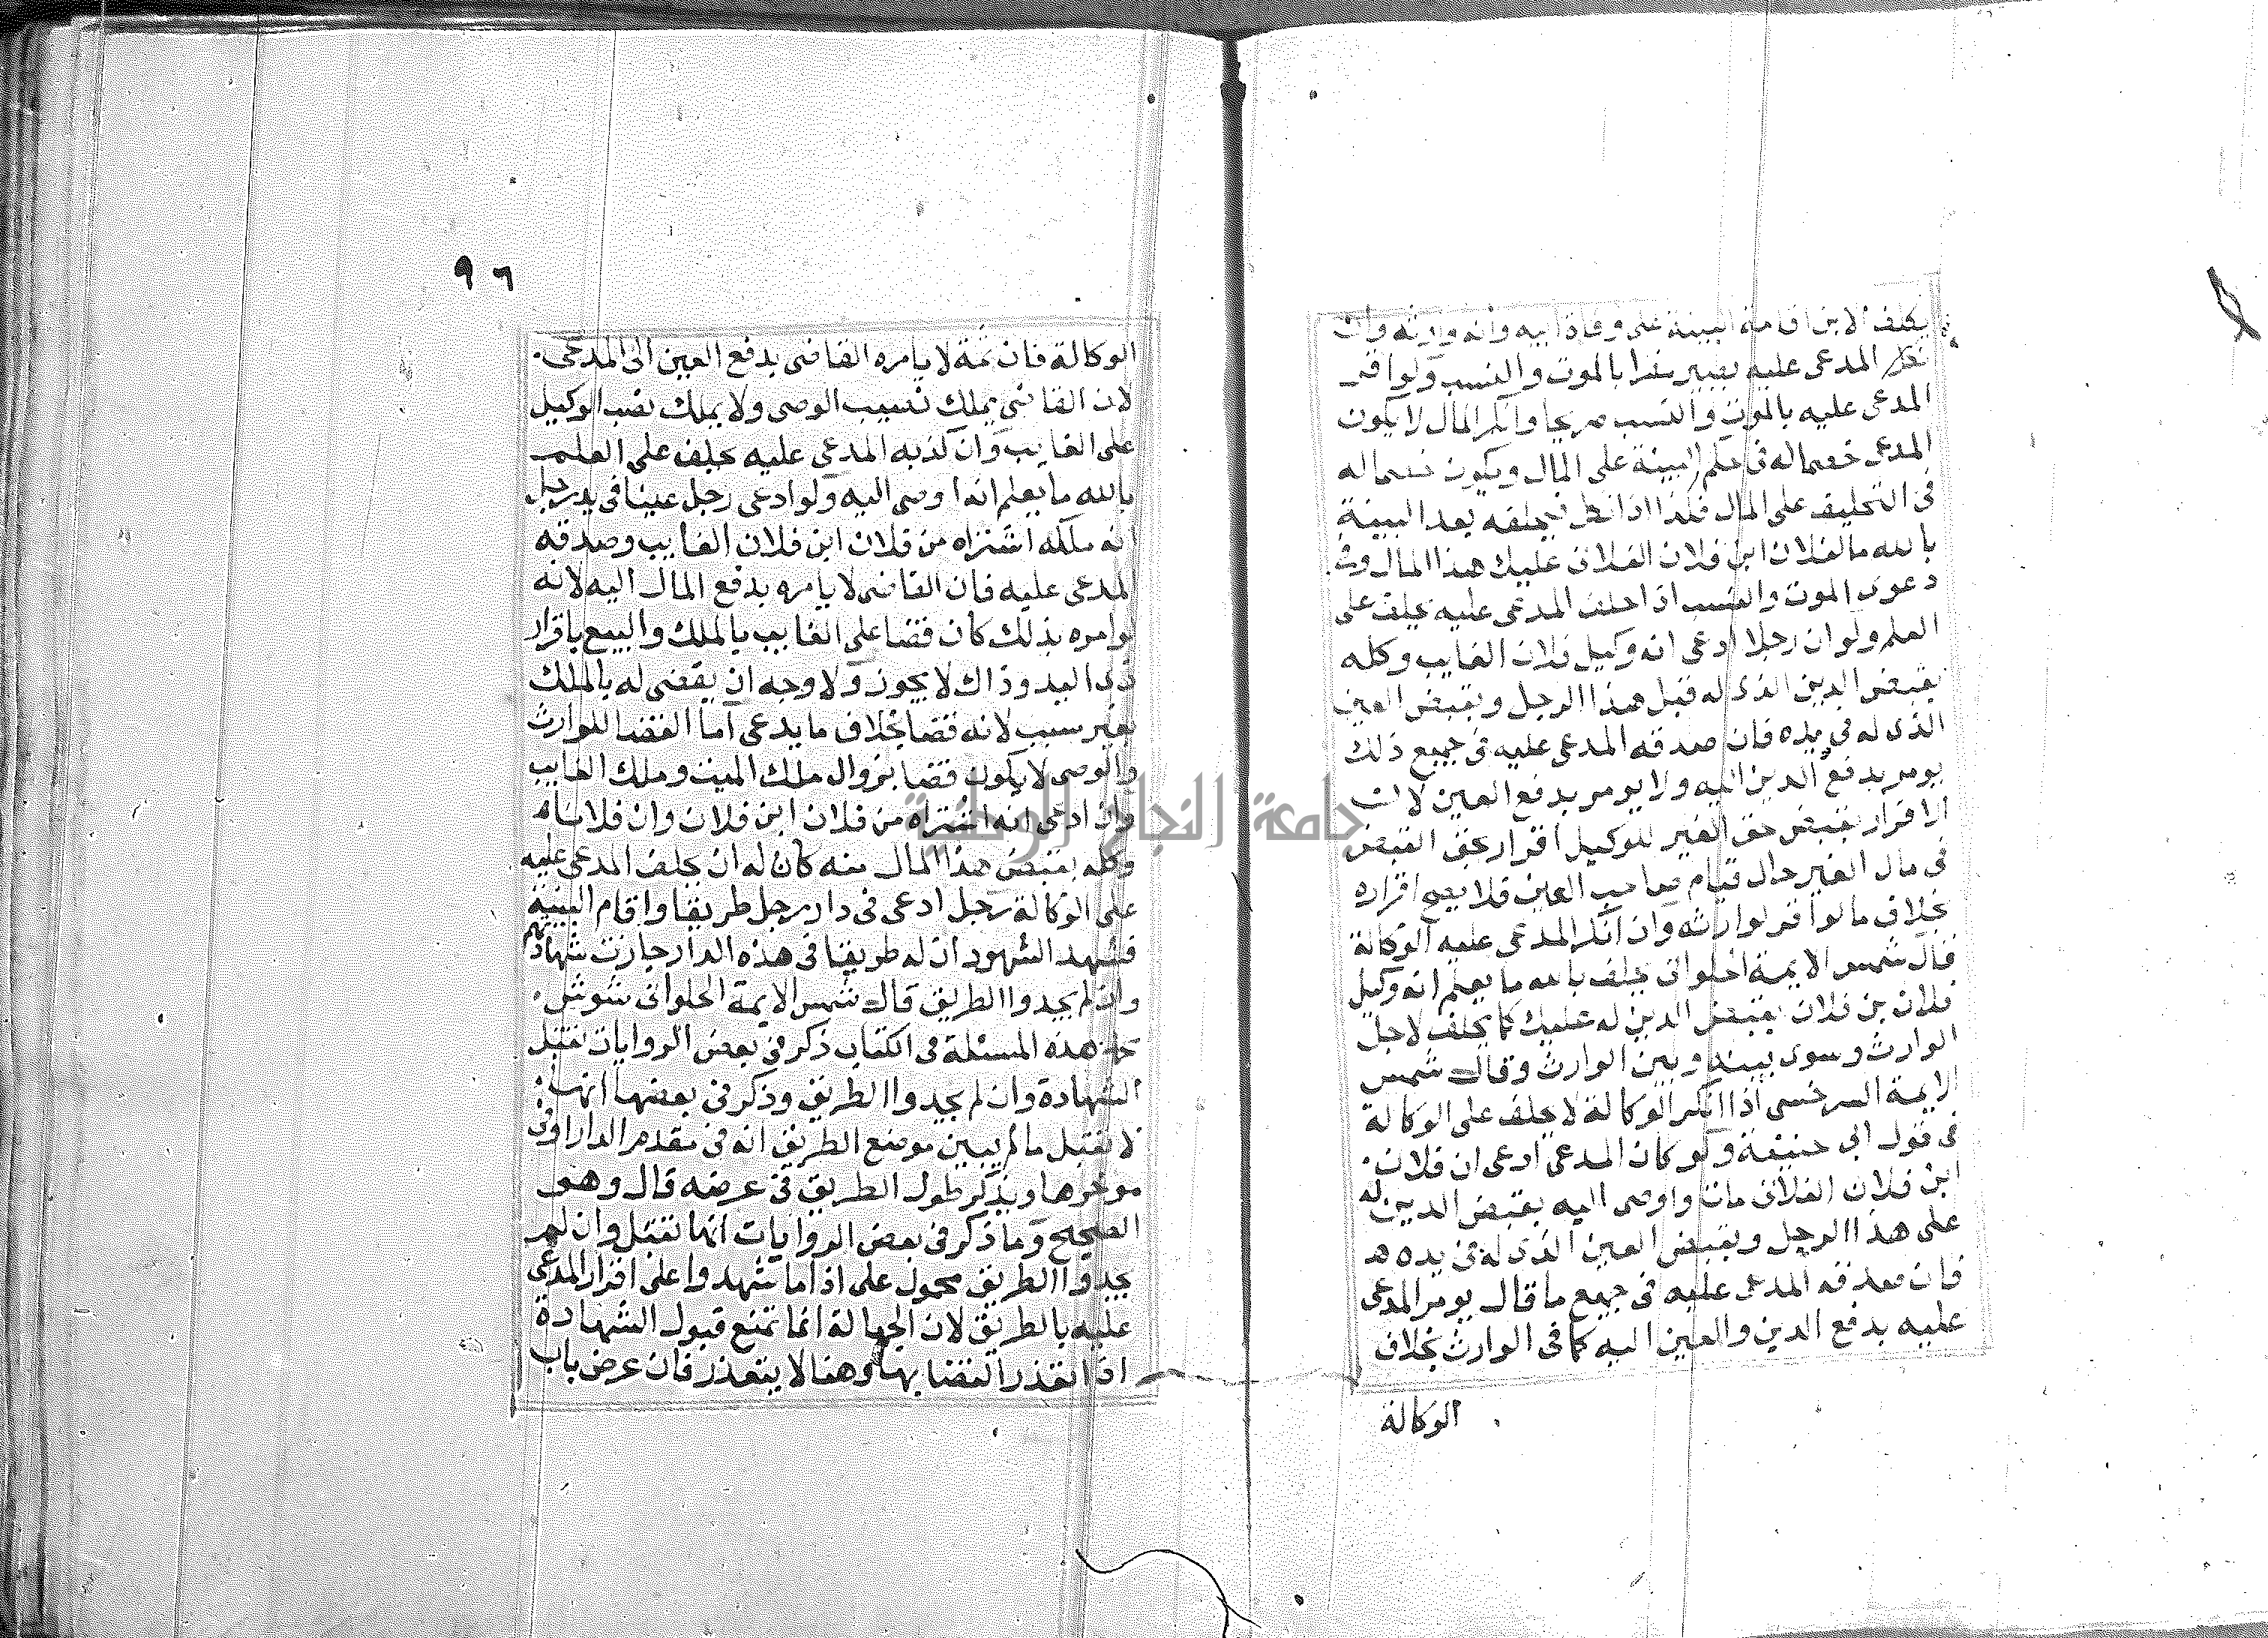 يكلف الابن اقامة البينة على وفاة ابيه وانه وارثه وان
نكل المدعى عليه يصير مقرا بالموت والنسب ولو اقر
المدعى عليه بالموت والنسب صريحا وانكر المال لا يكون
المدعى خصما له فى حكم البينة على المال ويكون خصما له
فى التحليف على المال فكذا اذا نكل يحلفه بعد البينة
بالله ما لفلان ابن فلان الفلانى عليك هذا المال وفى
دعوى الموت والنسب اذا حلف المدعى عليه يحلف على
العلم ولو ان رجلا ادعى انه وكيل فلان الغايب وكله
بقبض الدين الذى له قبل هذا الرجل وبقبض العين
الذى له فى يده فان صدقه المدعى عليه فى جميع ذلك
يومر بدفع الدين اليه ولا يومر بدفع العين لان
الاقرار بقبض حق الغير للوكيل اقرار بحق القبض
فى مال الغير حال قيام صاحب العين فلا يصح اقراره
بخلاف ما لو اقر لوارثه وان انكر المدعى عليه الوكالة
قال شمس الايمة الحلوانى يحلف بالله ما يعلم انه وكيل
فلان بن فلان بقبض الدين له عليك كما يحلف لاجل
الوارث وسوى بينه وبين الوارث وقال شمس
الايمة السرخسى اذا انكر الوكالة لا يحلف على الوكالة
فى قول ابى حنيفة ولو كان المدعى ادعى ان فلان
ابن فلان الفلانى مات واوصى اليه بقبض الدين له
على هذا الرجل وبقبض العين الذى له فى يده هذ
فان صدقه المدعى عليه فى جميع ما قال يومر المدعى
عليه بدفع الدين والعين اليه كما فى الوارث بخلاف
الوكالة
٩٦
الوكالة فان ثمة لا يامره القاضى بدفع العين الى المدعى
لان القاضى يملك تنصيب الوصى ولا يملك نصب الوكيل
على الغايب وان كذبه المدعى عليه يحلف على العلم
بالله ما يعلم انه اوصى اليه ولو ادعى رجل عينا فى يد رجل
انه ملكه اشتراه من فلان ابن فلان الغايب وصدقه
المدعى عليه فان القاضى لا يامره بدفع المال اليه لانه
لو امره بذلك كان قضا على الغايب بالملك والبيع باقرار
ذى اليد وذاك لا يجوز ولا وجه ان يقضى له بالملك
بغير سبب لانه قضا بخلاف ما يدعى اما القضا للوارث
والوصى لا يكون قضا بزوال ملك الميت وملك الغايب
وان ادعى انه اشتراه من فلان ابن فلان وان فلانا
وكله بقبض هذا المال منه كان له ان يحلف المدعى عليه
على الوكالة رجل ادعى فى دار رجل طريقا واقام البينة
فشهد الشهود ان له طريقا فى هذه الدار جازت شهادتهم
وان لم يحدوا الطريق قال شمس الايمة الحلوانى شوش
محمد هذه المسئلة فى الكتاب ذكر فى بعض الروايات تقبل
الشهادة وان لم يحدوا الطريق وذكر فى بعضها انها
لا تقبل ما لم يبين موضع الطريق انه فى مقدم الدار او فى
موخرها ويذكر طول الطريق فى عرضه قال وهو
الصحيح وما ذكر فى بعض الروايات انها تقبل وان لم
يحدوا الطريق محمول على اذا ما شهدوا على اقرار المدعى
عليه بالطريق لان الجهالة انما تمنع قبول الشهادة
اذا تعذر القضا بها وهنا لا يتعذر فان عرض باب
جامعة النجاح الوطنية